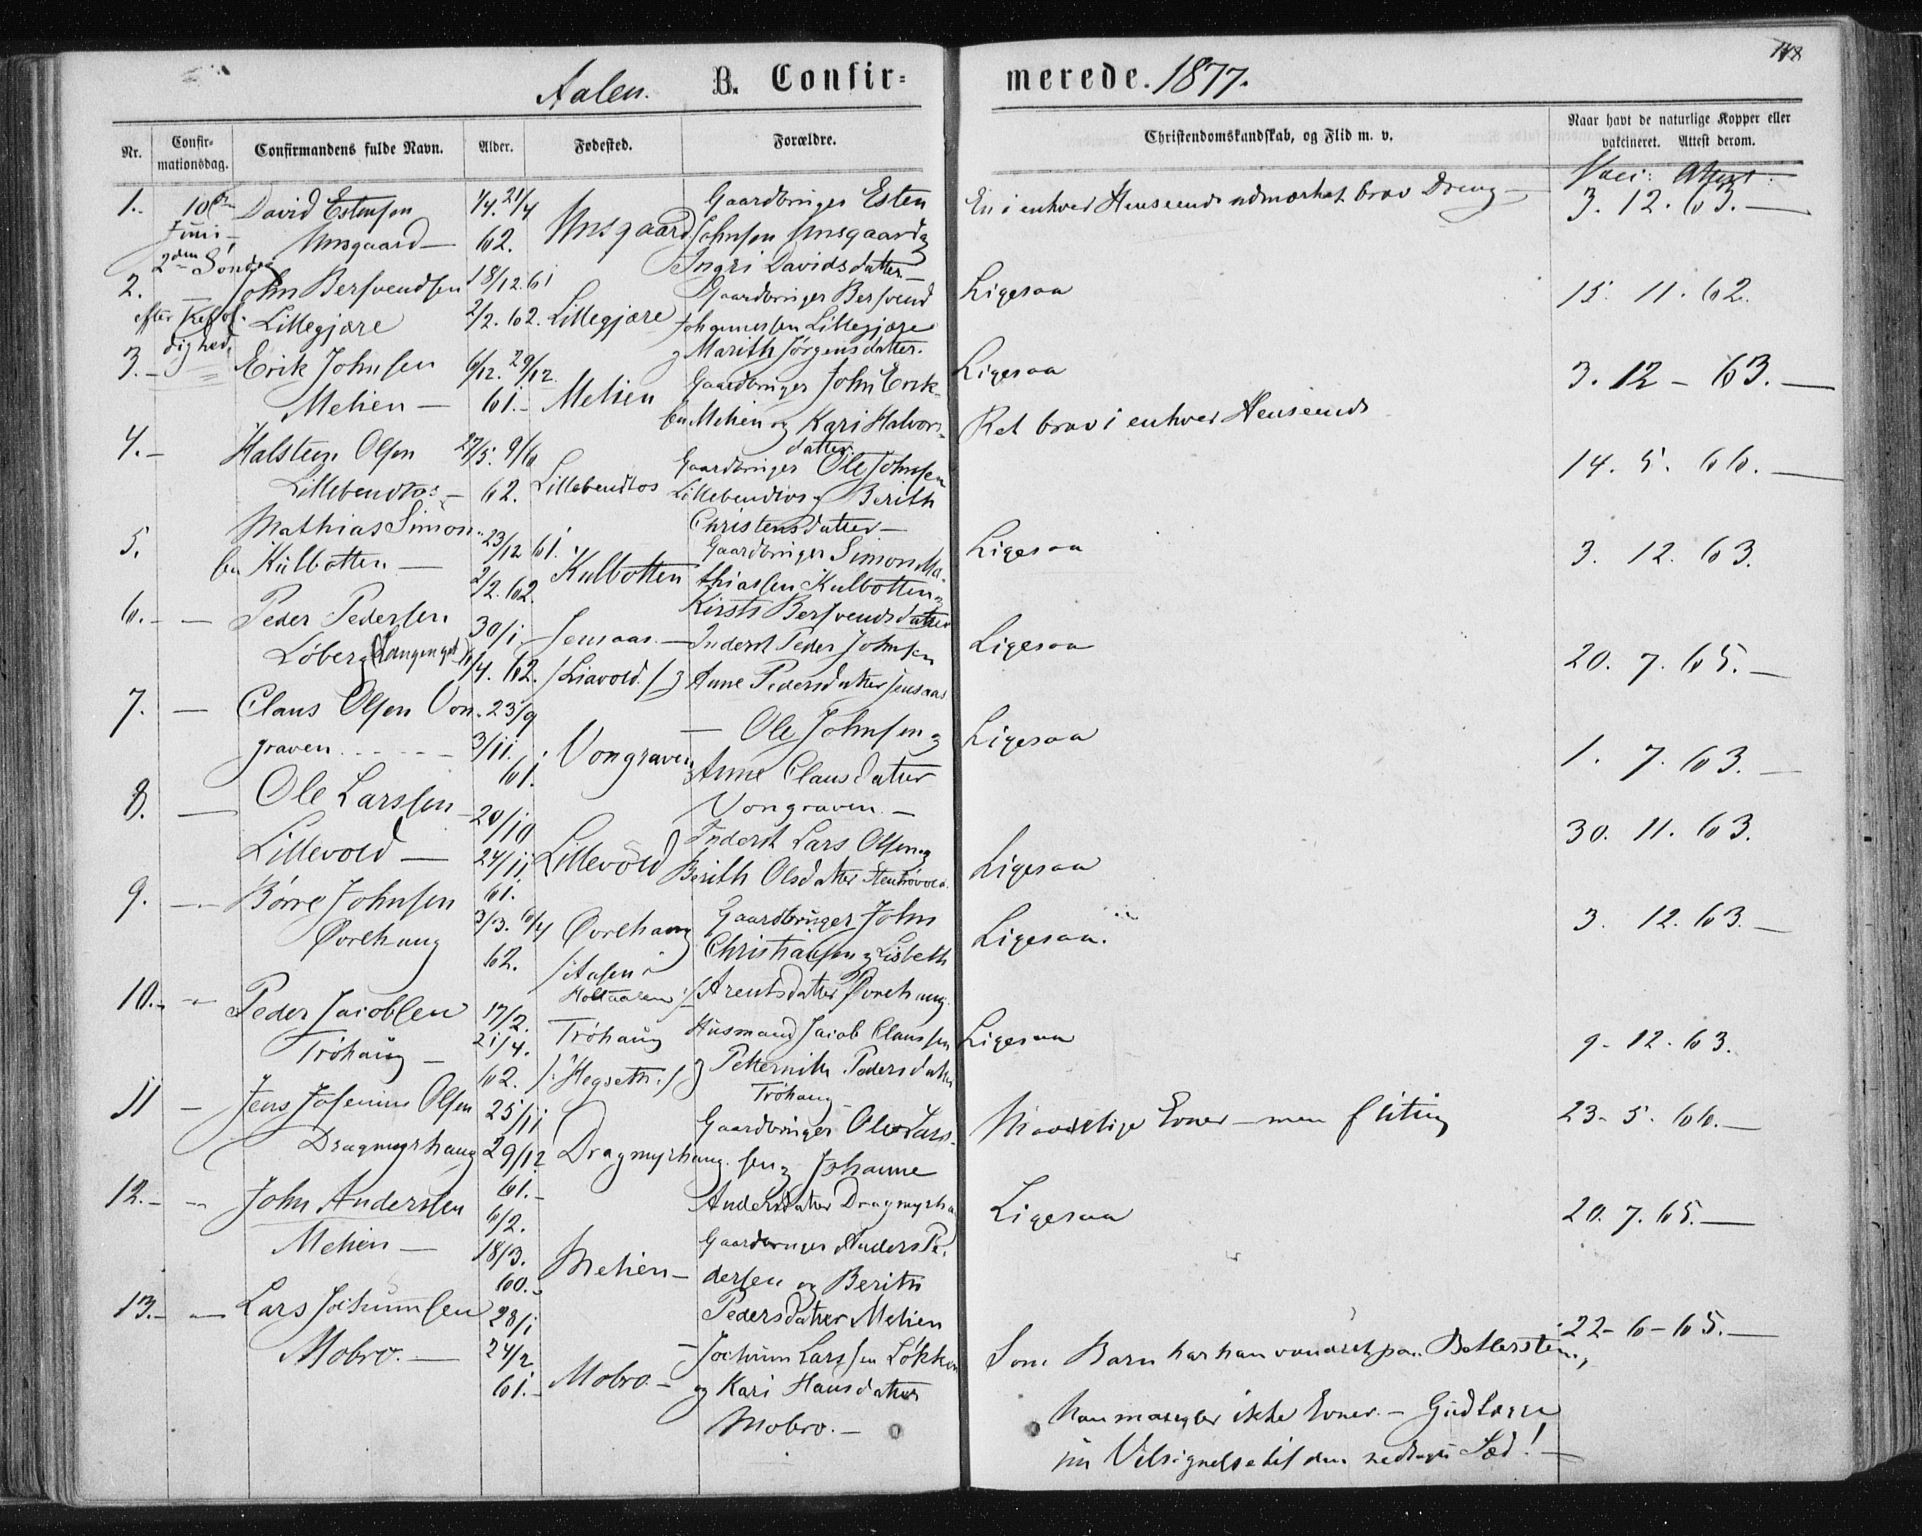 Aalen.
B. Confir=
merede. 1877.
118
Nr.
Confir-
mationsdag.
Confirmandens fulde Navn.
Alder.
Fødested.
Forældre.
Christendomskundskab, og Flid m. v.
Naar havt de naturlige Kopper eller
vakcineret. Attest derom.
Vacc: Attest:
1. 10de David Estensen 1/4. 21/4 Gaardbruger Esten
Juni Unsgaard 62. Unsgaard Johnsen Unsgaard og
2den Søndag Ingri Davidsdatter
En i enhver Henseende udmærket brav Dreng 3. 12. 63.
2. John Bersvendsen 18/12. 61 Gaardbruger Bersvend
efter Lillegjære 2/2. 62. Lillegjære Johannessen Lillegjære
og Marith Jørgensdatter.
Ligesaa 15. 11. 62.
3. Erik Johnsen 6/12. 29/12. Gaardbruger John Erik-
Mehen 61. Mehen sen Mehen og Kari Halvors-
datter
Ligesaa 3. 12 - 63.
4. Halstein Olsen 27/5. 9/6 Gaardbruger Ole Johnsen
Lillebendtos 62. Lillebendtos Lillebendtos og Berith
Christensdatter
Ret brav i enhver Henseende 14. 5. 66.
5. Mathias Simon- 23/12 61. Gaardbruger Simon Ma-
sen Kulbotten 2/2. 62. Kulbotten thiassen Kulbotten og
Kirsti Bersvendsdatter
Ligesaa 3. 12. 63.
6. Peder Pedersen 30/1 Jensaas Inderst Peder Johnsen
Løberg 62. /Liavold./ og Anne Pedersdatter Jensaas
Ligesaa 20. 7. 65.
7. Claus Olsen Von- 23/9 Ole Johnsen og
graven 3/11. 61. Vongraven Anne Clausdatter
Vongraven.
Ligesaa 1. 7. 63.
8. Ole Larssen 20/10 Inderst Lars Olsen og
Lillevold 24/11 61. Lillevold Berith Olsdatter
Ligesaa 30. 11. 63.
9. Børre Johnsen 3/3. 6/4 Øvrehaug Gaardbruger John
Øvrehaug 62. /:Aasen i Christiansen og Lisbeth
Holtaalen:/ Arentsdatter Øvrehaug
Ligesaa. 3. 12. 63.
10. Peder Jacobsen 17/2. Trøhaug Husmand Jacob Claussen
Trøhaug 21/4. 62. /:Hegseth:/ og Petternille Pedersdatter
Trøhaug
Ligesaa 9. 12. 63.
11 Jens Josenius Olsen 25/11 Gaardbruger Ole Lars-
Dragmyrhaug 29/12 61. Dragmyrhaug sen og Johanne
Andersdatter Dragmyrha
Maadelige Evner - men flittig 23. 5. 66.
12. John Anderssen 6/2. Gaardbruger Anders Pe-
Mehen 18/3. 60. Mehen dersen og Berith
Pedersdatter Mehen
Ligesaa 20. 7. 65.
13. Lars Jochumsen 28/1 Jochum Larssen Løkken
Mobro. 24/2 61. Mobro. og Kari Hansdatter
Mobro.
22-6-65.
Som Barn har han vandret paa Betlersten,
han mangler ikke Evner. - Gud lægge
sin Velsignelse til den nedlagte Sæd!